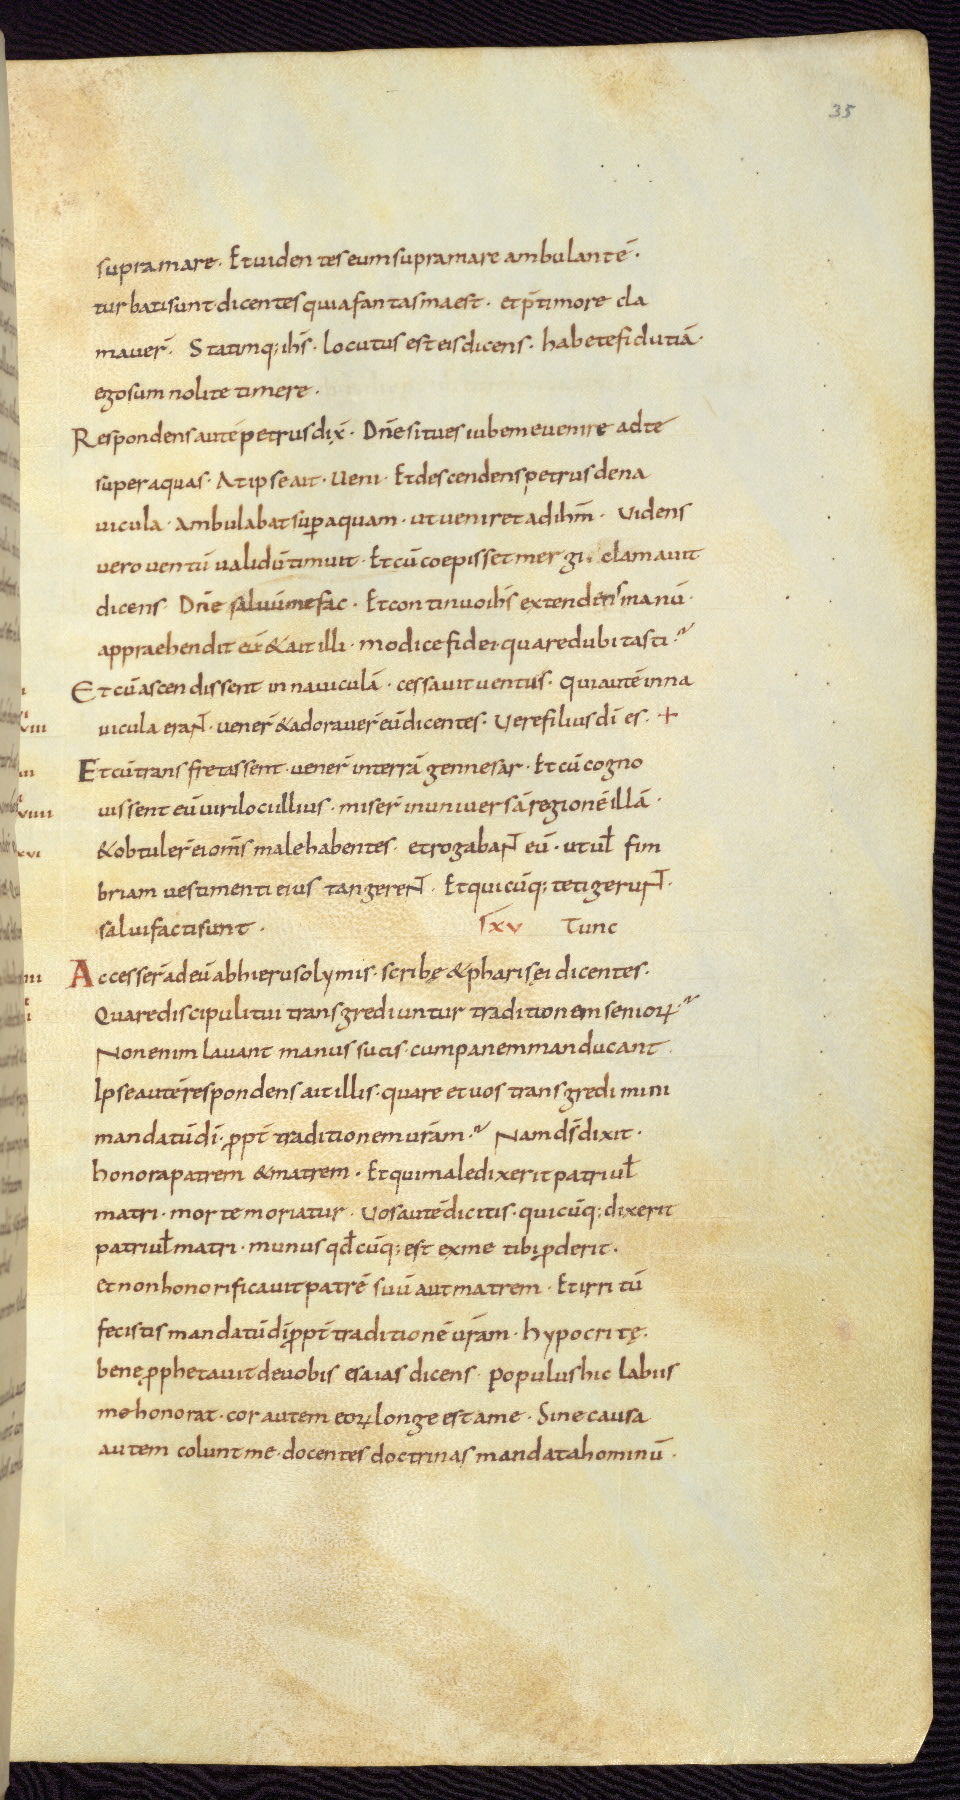 35
supra mare · Et uidentes eum supra mare ambulantē ·
turbati sunt · dicentes quia fantasma est · et p̄ timore cla
mauer̄ · Statimq; ihs̄ · locutus est eis dicens · habete fidutiā ·
ego sum nolite timere ·
Respondens autē petrus dix̄ · Dn̄e si tu es iube me uenire ad te
super aquas · At ipse ait · Ueni · Et descendens petrus de na
uicula · ambulabat sup̱ aquam · ut ueniret ad ihm̄ · Uidens
uero uentū ualidū timuit · Et cū coepisset mergi · clamauit
dicens · Dn̄e saluū me fac · Et continuo ihs̄ extendens manū ·
appraehendit eū & ait illi · modice fidei · quare dubitasti ·~
Et cū ascendissent in nauiculā · cessauit uentus · Qui autē in na
uicula eraɴ̄ · uener̄ & adorauer̄ eū dicentes · Uere filius dī es · +
Et cū transfretassent · uener̄ in terrā gennesar · Et cū cogno
uissent eū uiri loci illius · miser̄ in uniuersā regionē illā ·
& obtuler̄ ei om̄s male habentes · et rogabaɴ̄ eū · ut ul̄ fim
briam uestimenti eius tangereɴ̄ · Et quicūq; tetigeruɴ̄ ·
salui facti sunt ·
sxv Tunc
Accesser̄ ad eū ab hierusolymis · scribę & pharisęi dicentes ·
Quare discipuli tui transgrediuntur traditionem senioꝝ ·~
Non enim lauant manus suas · cum panem manducant ·
Ipse autē respondens ait illis · quare et uos transgredimini
mandatū dī · ꝓpt̄ traditionem ur̄am ·~ Nam ds̄ dixit ·
honora patrem & matrem · Et qui maledixerit patri ul̄
matri · morte moriatur · Uos autē dicitis · quicūq; dixerit
patri ul̄ matri · munus qd̄cūq; est ex me tibi ꝓderit ·
et non honorificauit patrē suū aut matrem · Et irritū
fecistis mandatū dī ꝓpt̄ traditionē ur̄am · hypocritę ·
bene ꝓphetauit de uobis esaias dicens · populus hic labiis
me honorat · cor autem eoꝝ longe est a me · Sine causa
autem colunt me · docentes doctrinas mandata hominū ·